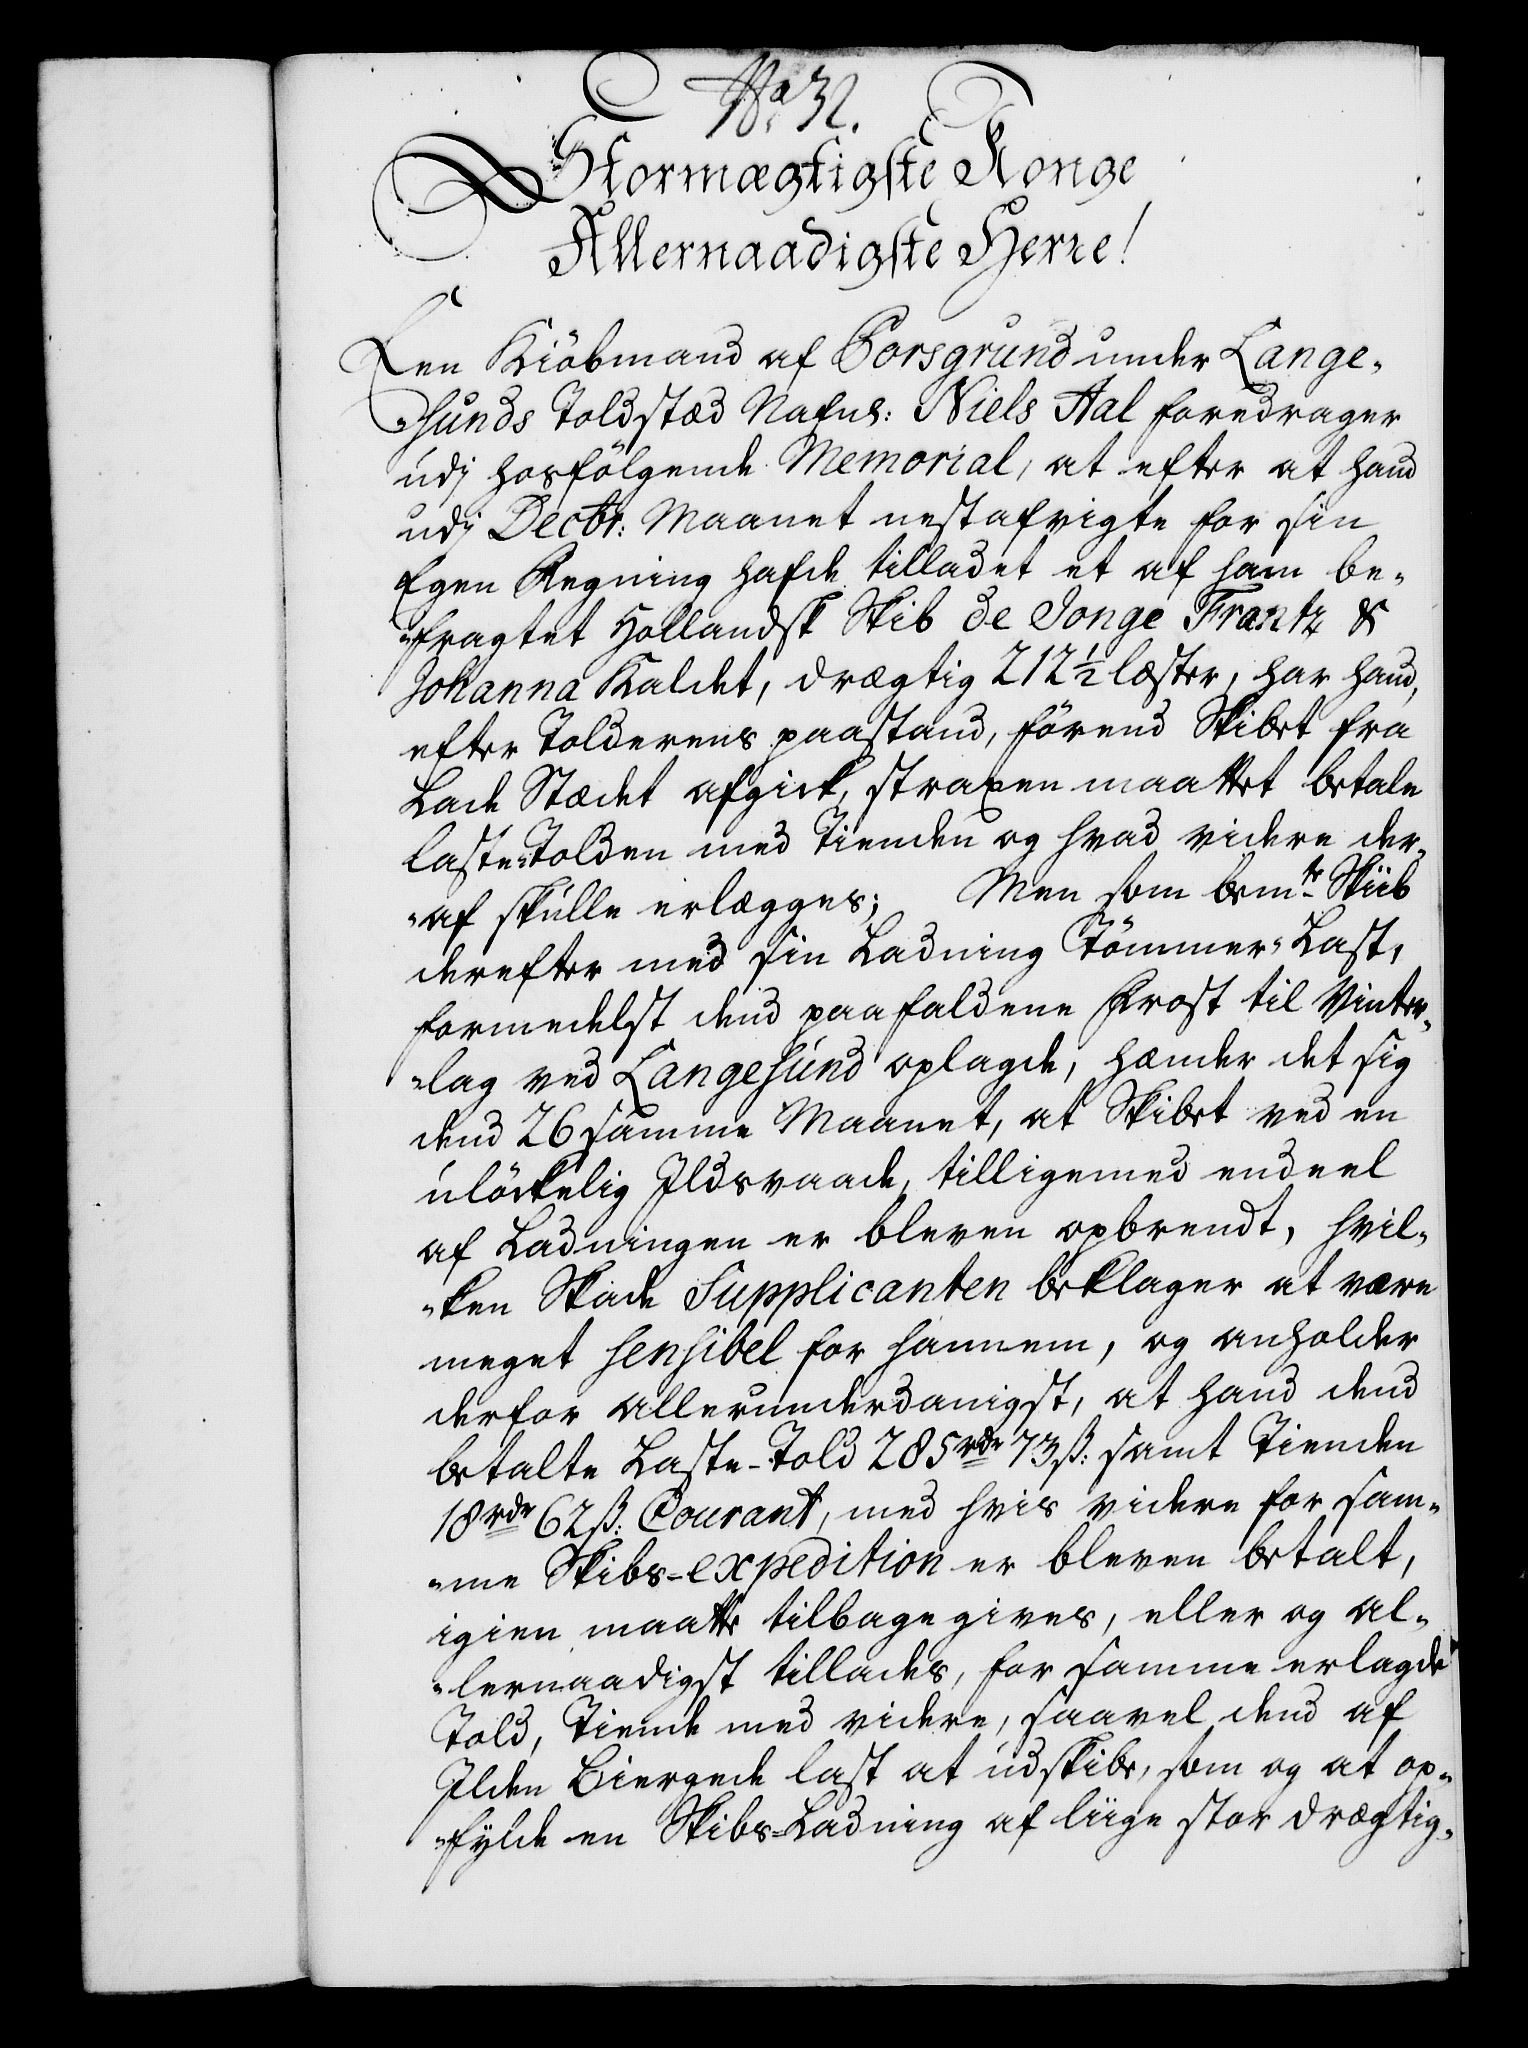 No 32.
Stormægtigste Konge
Allernaadigste Herre!
Een Kiöbmand af Porsgrund under Lange-
-sunds Toldstæd Nafnl: Niels Aal foredrager
udj hosfölgende Memorial, at efter at hand
udj Decbr: Maanet nestafvigte for sin
Egen Regning hafde tilladet et af ham be-
-fragtet Hollandsk Skib de Jonge Frantz &
Johanna Kaldet, drægtig 212 1/2 læster, har hand,
efter Tolderens paastand, förend Skibet fra
Lade Stædet afgick, straxen maattet betale
laste-Tolden med Tienden og hvad videre der-
-af skulle erlægges; Men som bemte Skiib
derefter med sin Ladning Tömmer-Last,
formedelst dend paafaldene Frost til Vinter-
-lag ved Langesund oplagde, hænder det sig
dend 26 samme Maanet, at Skibet ved en
ulöckelig Ildsvaade, tilligemed endeel
af Ladningen er bleven opbrendt, hvil-
-ken Skade Supplicanten beklager at være
meget sensibel for hannem, og anholder
derfor allerunderdanigst, at hand dend
betalte Laste-Told 285 rdr 73 ß: samt Tienden
18 rdr 62 ß: Courant, med hvis videre for sam-
-me Skibs-expedition er bleven betalt,
igien maatte tilbagegives, eller og al-
-lernaadigst tillades, for samme erlagde
Told, Tiende med videre, saavel dend af
Ilden Biergede last at udskibe, som og at op-
-fylde en Skibs-Ladning af liige stor drægtig-